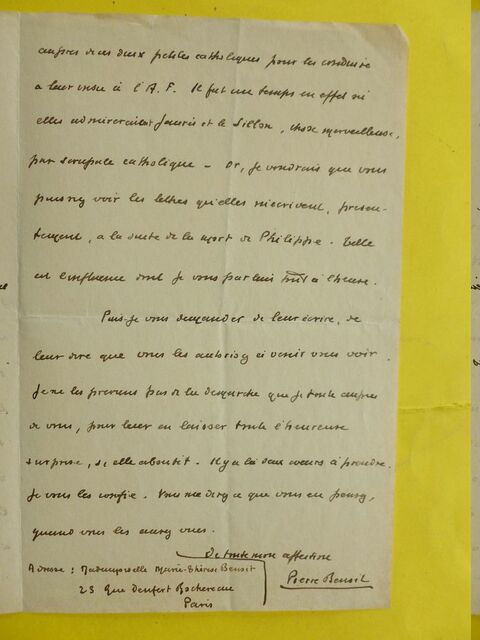 auprès de ces deux petites catholiques pour les conduire
à leur insu à l'A.F. Il fut un temps en effet où
elles admiraient Jaurès et le Sillon, chose merveilleuse,
par scrupule catholique – Or, je voudrais que vous
puissiez voir les lettres qu'elles m'écrivent, présen-
tement, à la suite de la mort de Philippe. Telle
est l'influence dont je vous parlais tout à l'heure.
Puis-je vous demander de leur écrire, de
leur dire que vous les autorisez à venir vous voir.
Je ne les préviens pas de la démarche que je tente auprès
de vous, pour leur en laisser toute l'heureuse
surprise, si elle aboutit. Il y a là deux cœurs à prendre.
Je vous les confie. Vous me direz ce que vous en pensez,
quand vous les aurez vues.
De toute mon affection
Pierre Benoit
Adresse : Mademoiselle Marie-Thérèse Benoit
25 Rue Denfert Rochereau
Paris